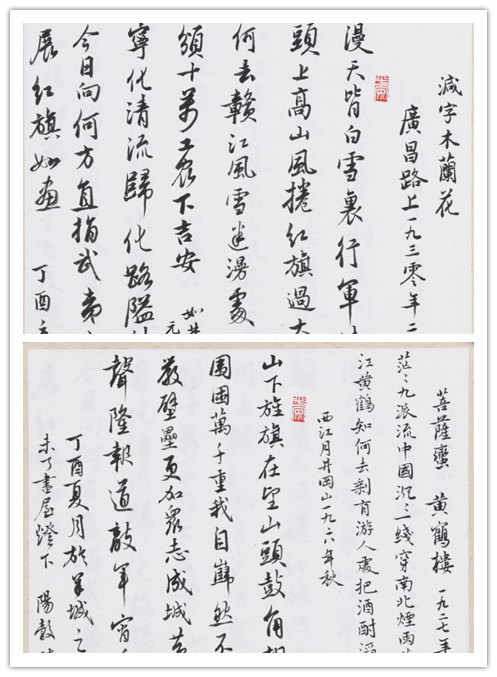 減字木蘭花
廣昌路上一九三零年二
漫天皆白雪裏行軍
頭上高山風捲紅旗過大
何去贛江風雪迷漫處
頒十萬工農下吉安
如
元
寧化清流歸化路隘
今日向何方直指武夷
展紅旗如畫
丁酉
菩薩蠻 黃鶴樓 一九二七年
茫〻九派流中國沉〻一线穿南北煙雨
江黃鶴知何去剩有游人處把酒酹滔
西江月井岡山一九二八年秋
山下旌旗在望山頭鼓角相
圍困萬千重我自巋然不
嚴壁壘更加眾志成城黃
聲隆報道敵軍宵
丁酉夏月於羊城之
未了畫屋燈下 陽